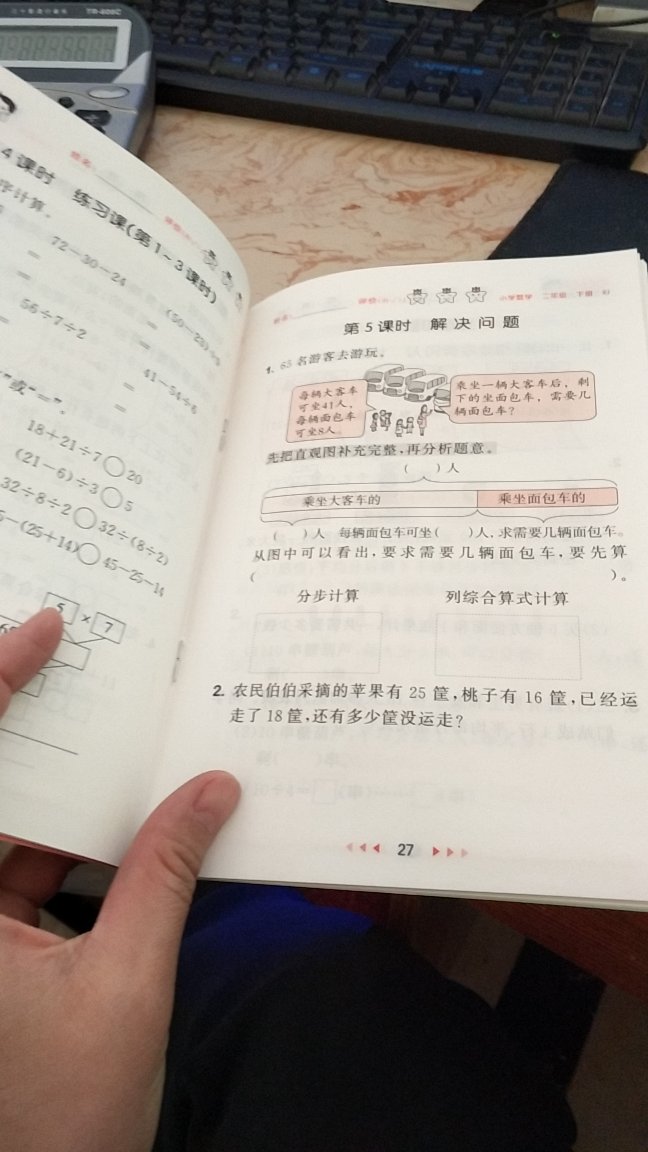 TR-800C
4 课时 练习课(第1~3课时)
序计算。
72-30-24
=
=
56÷7÷2
=
41-54÷6
=
”或“=”。
18+21÷7○20
(21-6)÷3○5
32÷8÷2○32÷(8÷2)
-(25+14)○45-25-14
5 × 7
小学数学 二年级 下册
第5课时 解决问题
1. 65名游客去游玩。
每辆大客车
可坐41人,
每辆面包车
可坐8人。
乘坐一辆大客车后,剩
下的坐面包车,需要几
辆面包车?
先把直观图补充完整,再分析题意。
( )人
乘坐大客车的 乘坐面包车的
( )人 每辆面包车可坐( )人,求需要几辆面包车。
从图中可以看出,要求需要几辆面包车,要先算
( )。
分步计算 列综合算式计算
2. 农民伯伯采摘的苹果有 25 筐,桃子有 16 筐,已经运
走了 18 筐,还有多少筐没运走?
27